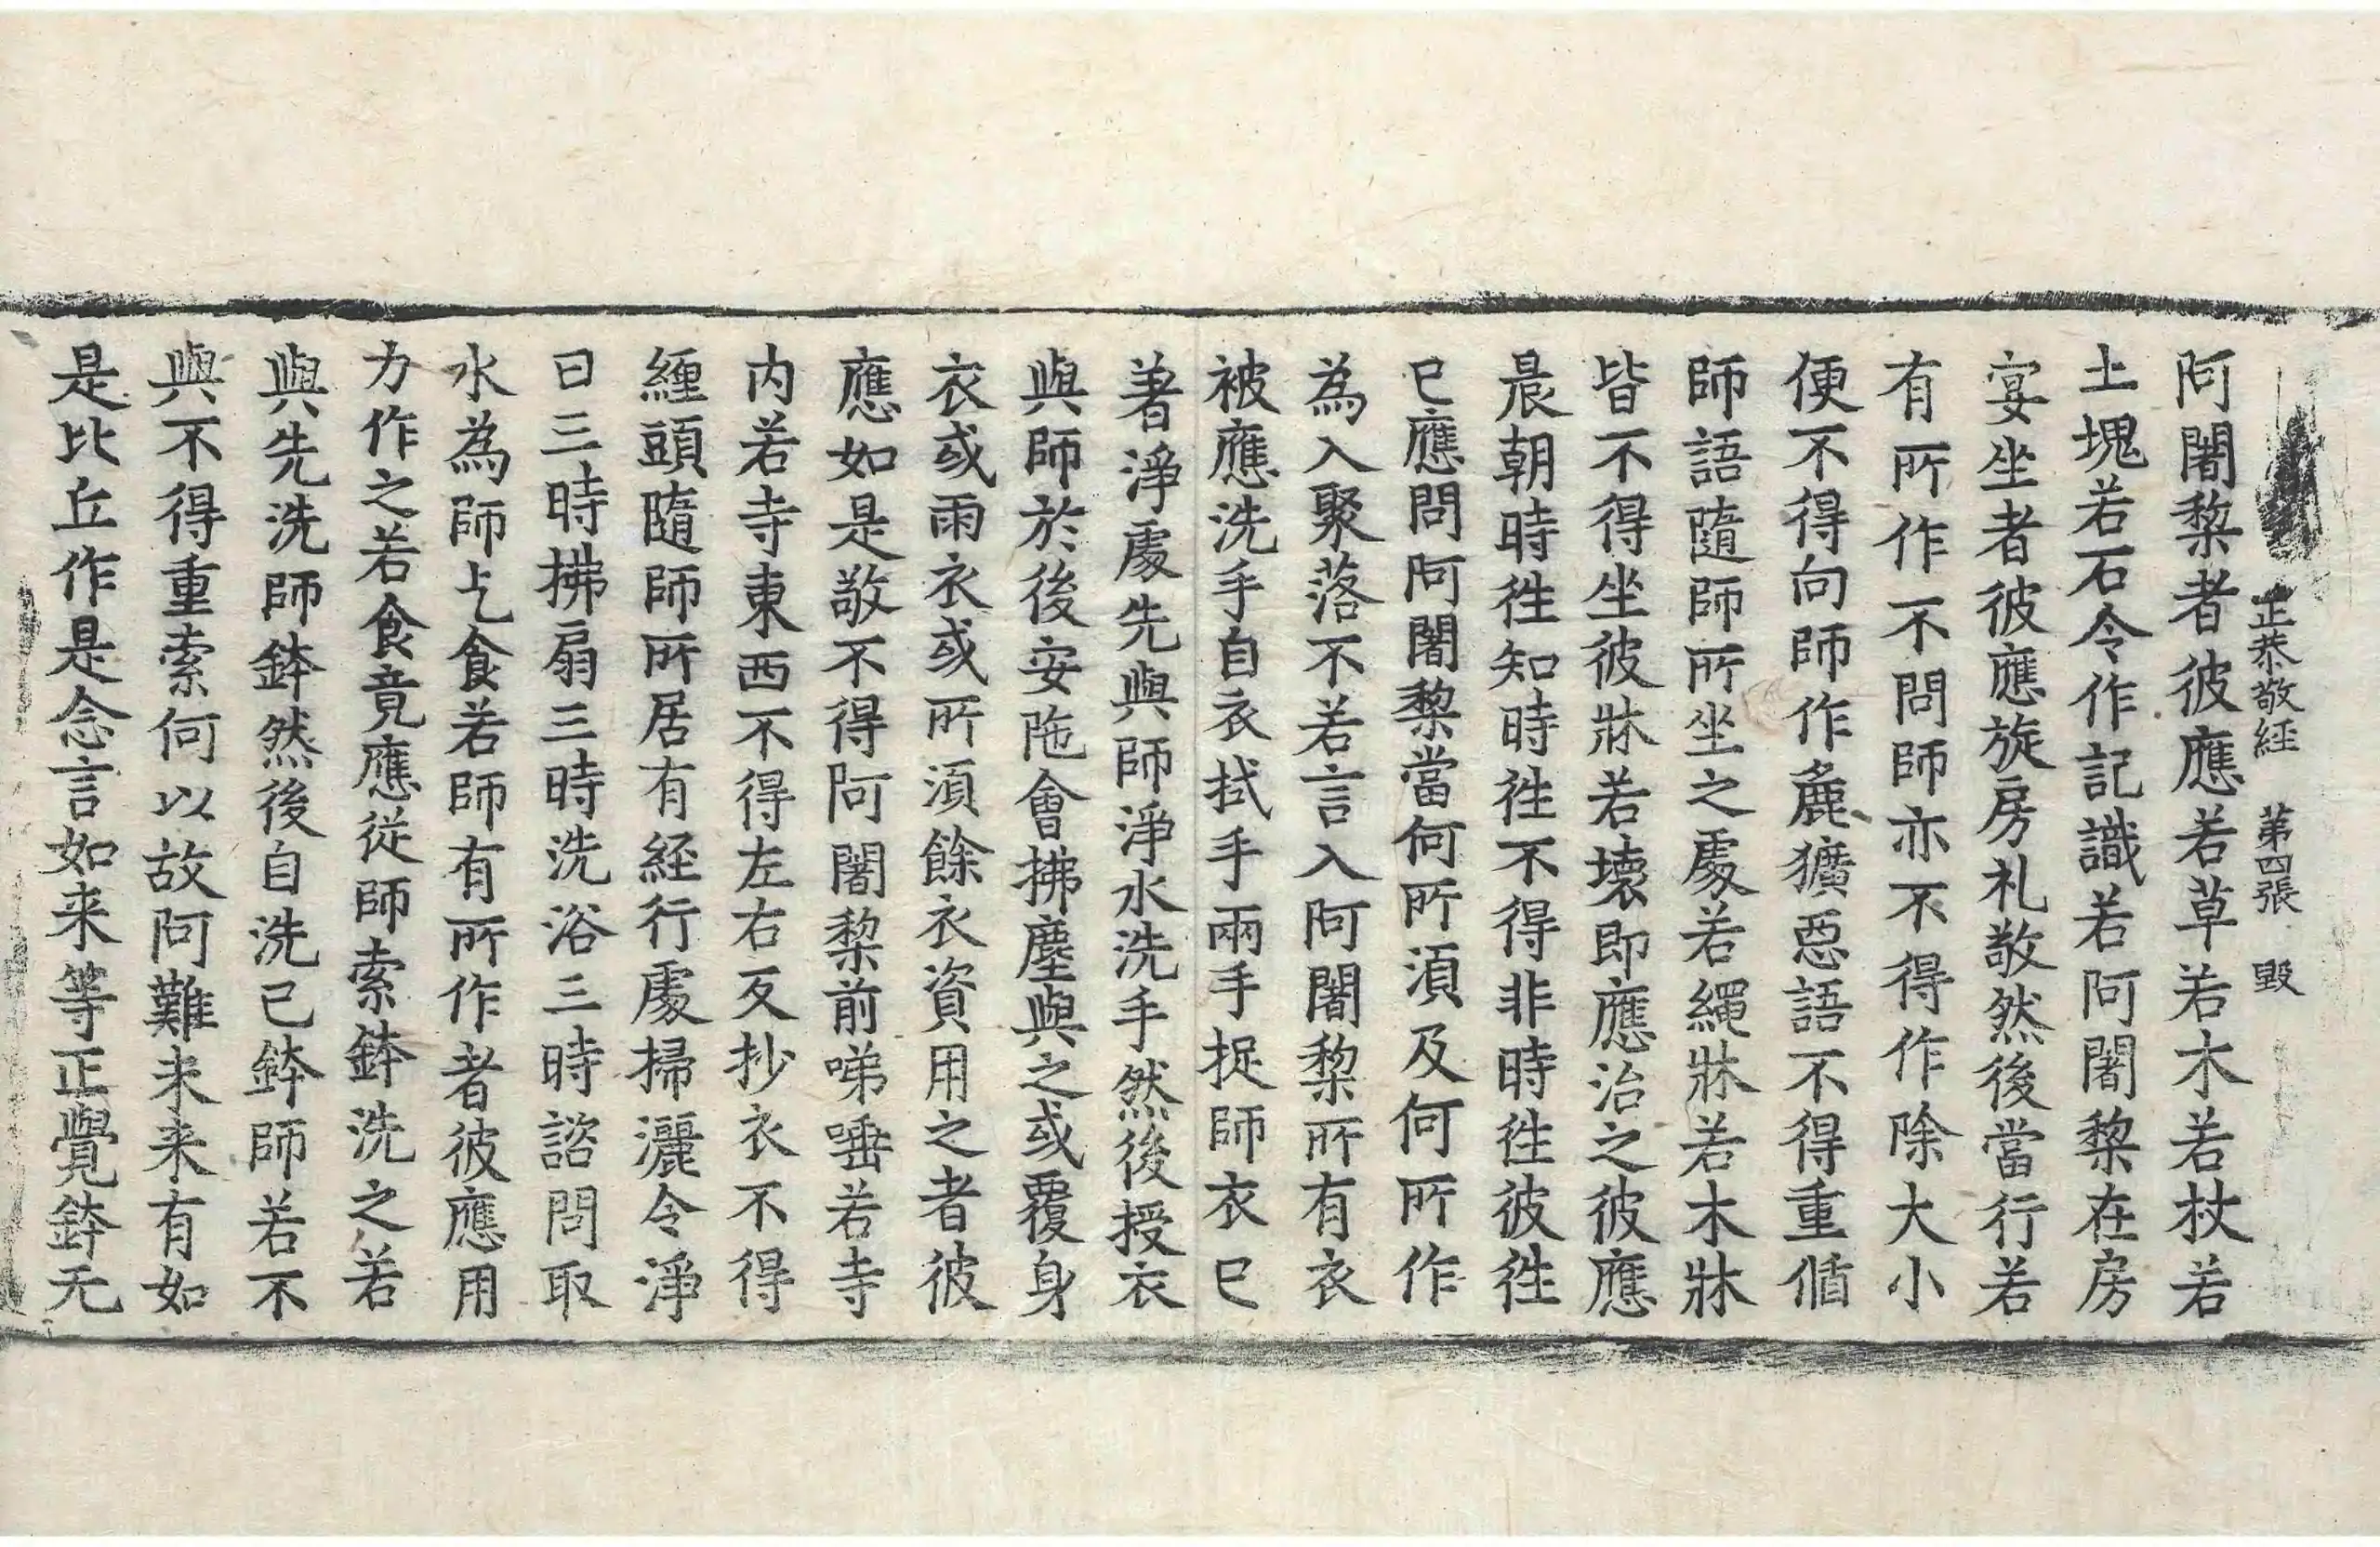 正恭敬経 第四張 毀
阿闍棃者彼應若草若木若杖若
土塊若石令作記識若阿闍棃在房
宴坐者彼應旋房礼敬然後當行若
有所作不問師亦不得作除大小
便不得向師作麁獷惡語不得重俻
師語隨師所坐之處若繩牀若木牀
皆不得坐彼牀若壞即應治之彼應
晨朝時徃知時徃不得非時徃彼徃
已應問阿闍棃當何所湏及何所作
為入聚落不若言入阿闍棃所有衣
被應洗手自衣拭手兩手捉師衣已
著淨處先與師淨水洗手然後授衣
與師於後安陁會拂塵與之或覆身
衣或雨衣或所湏餘衣資用之者彼
應如是敬不得阿闍棃前㖒唾若寺
内若寺東西不得左右反抄衣不得
纏頭隨師所居有経行處掃灑令淨
日三時拂扇三時洗浴三時諮問取
水為師乞食若師有所作者彼應用
力作之若食竟應従師索鉢洗之若
與先洗師鉢然後自洗已鉢師若不
與不得重索何以故阿難未来有如
是比丘作是念言如来等正覺鉢无